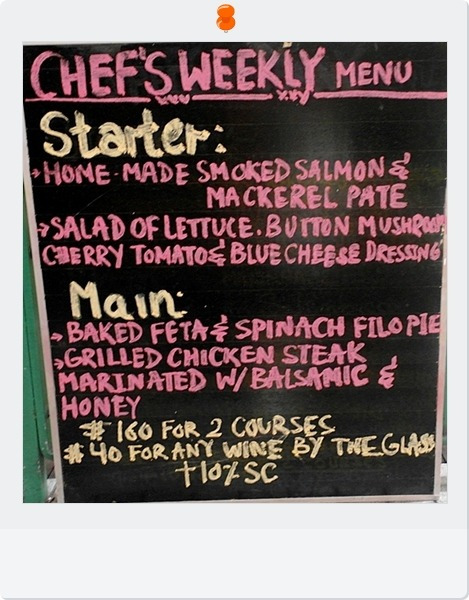 CHEF'S WEEKLY MENU
Starter:
→HOME-MADE SMOKED SALMON &
MACKEREL PATE
→SALAD OF LETTUCE. BUTTON MUSHROOM
CHERRY TOMATO & BLUE CHEESE DRESSING
Main:
→BAKED FETA & SPINACH FILO PIE
→GRILLED CHICKEN STEAK
MARINATED W/ BALSAMIC &
HONEY
$ 160 FOR 2 COURSES
$ 40 FOR ANY WINE BY THE GLASS
+10% SC